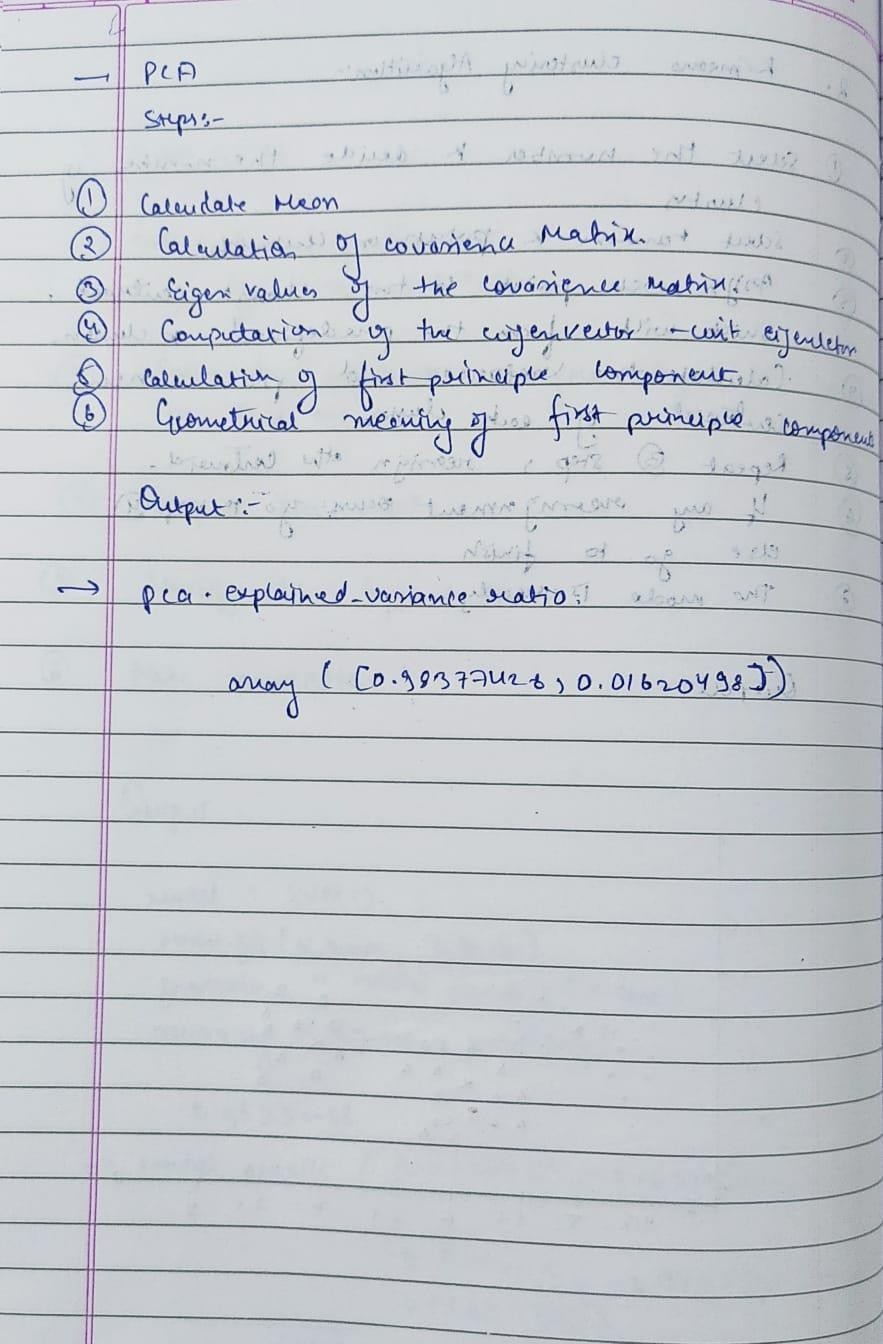 → PCA
Steps:-
① Calculate Mean
② Calculation of covarience Matrix.
③ Eigen values of the covarience matrix.
④ Computation of the eigenvector - unit eigenvector
⑤ Calculation of first principle component.
⑥ Geometrical meaning of first principle component
Output :-
→ pca. explained_variance_ratio:
array ( [0.98377428, 0.01620498])